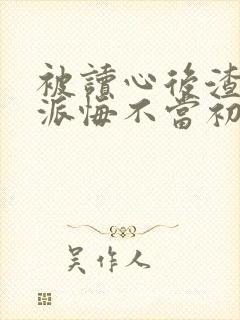 被讀心後渣
派悔不當初
吳作人